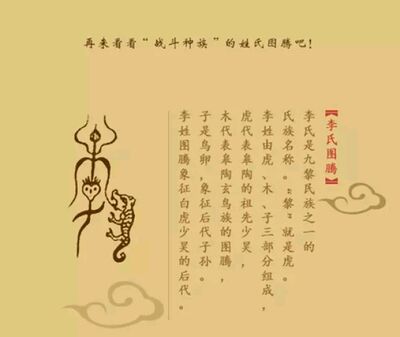 再来看看“战斗种族”的姓氏图腾吧！
【李氏图腾】
李氏是九黎民族之一的
氏族名称。“黎”就是虎。
李姓由虎、木、子三部分组成，
虎代表皋陶的祖先少昊，
木代表皋陶玄鸟族的图腾，
子是鸟卵，象征后代子孙。
李姓图腾象征白虎少昊的后代。